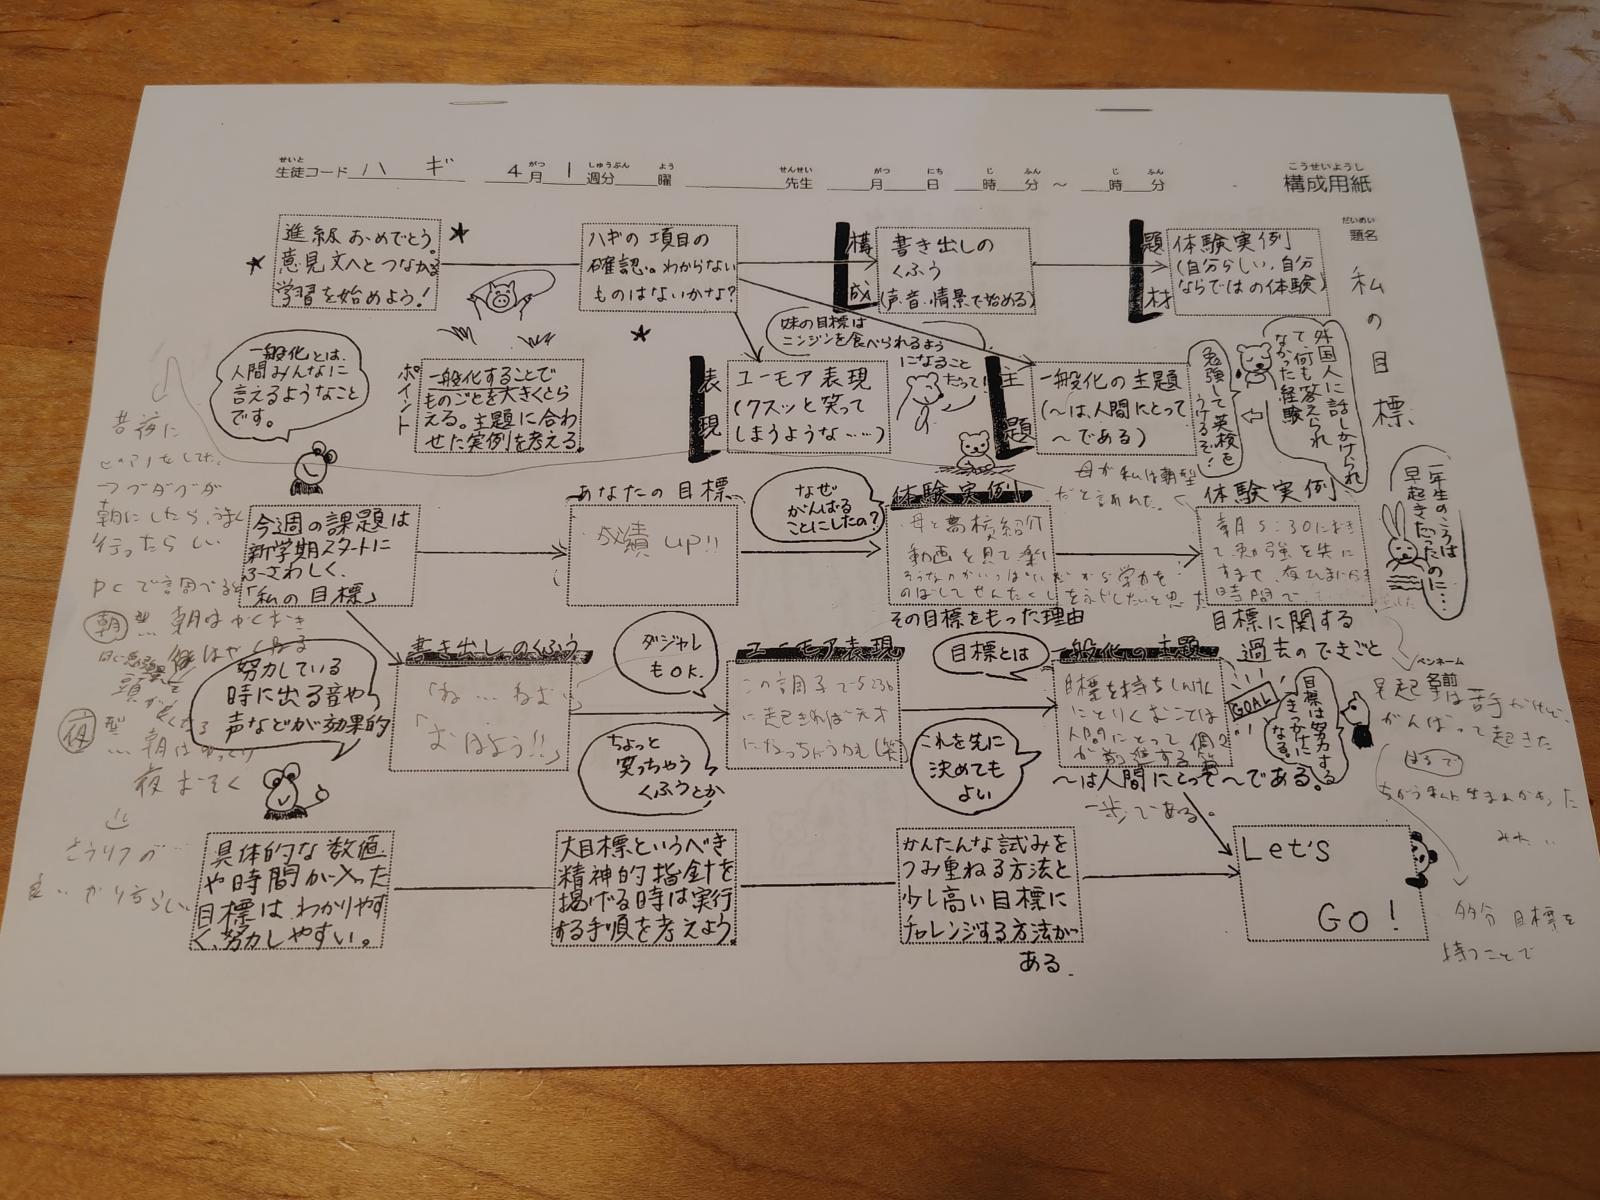 せいと がつ しゅうぶん よう せんせい がつ にち じ ふん じ ふん こうせいようし
生徒コード ハギ 4月 1週分 曜 先生 月 日 時 分 ~ 時 分 構成用紙
だいめい
題名
私の目標
進級おめでとう。
意見文へとつながる
学習を始めよう!
ハギの項目の
確認。わからない
ものはないかな?
構成
書き出しの
くふう
(声・音・情景で始める)
題材
体験実例
(自分らしい、自分
ならではの体験)
一般化とは、
人間みんなに
言えるようなこと
です。
ポイント
一般化することで
ものごとを大きくとら
える。主題に合わ
せた実例を考える。
表現
ユーモア表現
(クスッと笑って
しまうような……)
妹の目標は
ニンジンを食べられるよう
になること
だって!
主題
一般化の主題
(~は、人間にとって
~である)
外国人に話しかけられ
て、何も答えられ
なかった経験
勉強して英検を
うけるぞ!
一年生のころは
早起きだったのに…
今週の課題は
新学期スタートに
ふさわしく、
「私の目標」
あなたの目標
成績up!!
なぜ
がんばる
ことにしたの?
体験実例
母と高校紹介
動画を見て楽し
そうなのがいっぱい
から学力を
のばして
その目標をもった理由
母が私は朝型
だと言われた。
体験実例
朝5:30におき
て勉強を先に
時間で
目標に関する
過去のできごと
努力している
時に出る音や
声などが効果的
書き出しのくふう
「ね…ねむい」
「おはよう!!」
ダジャレ
もOK.
ちょっと
笑っちゃう
くふうとか
ユーモア表現
この調子で
に起きれば天才
になっちゃうかも(笑)
目標とは
これを先に
決めても
よい
一般化の主題
目標を持ち
にとりくむことは
人間にとって
が前進する
~は人間にとって~である。
一歩である。
GOAL
目標は努力する
きっかけに
なる。
ペンネーム
名前
早起きは苦手だけど、
がんばって起きた
はるで
多分目標を
持つことで
昔夜に
ピアノをした。
朝にしたら、
行ったらしい
PCで調べると
朝型…朝は
夜型
…朝はゆっくり
夜おそく
具体的な数値
や時間が入った
目標は、わかりやす
く、努力しやすい。
大目標というべき
精神的指針を
掲げる時は実行
する手順を考えよう。
かんたんな試みを
つみ重ねる方法と
少し高い目標に
チャレンジする方法が
ある.
Let's
GO!